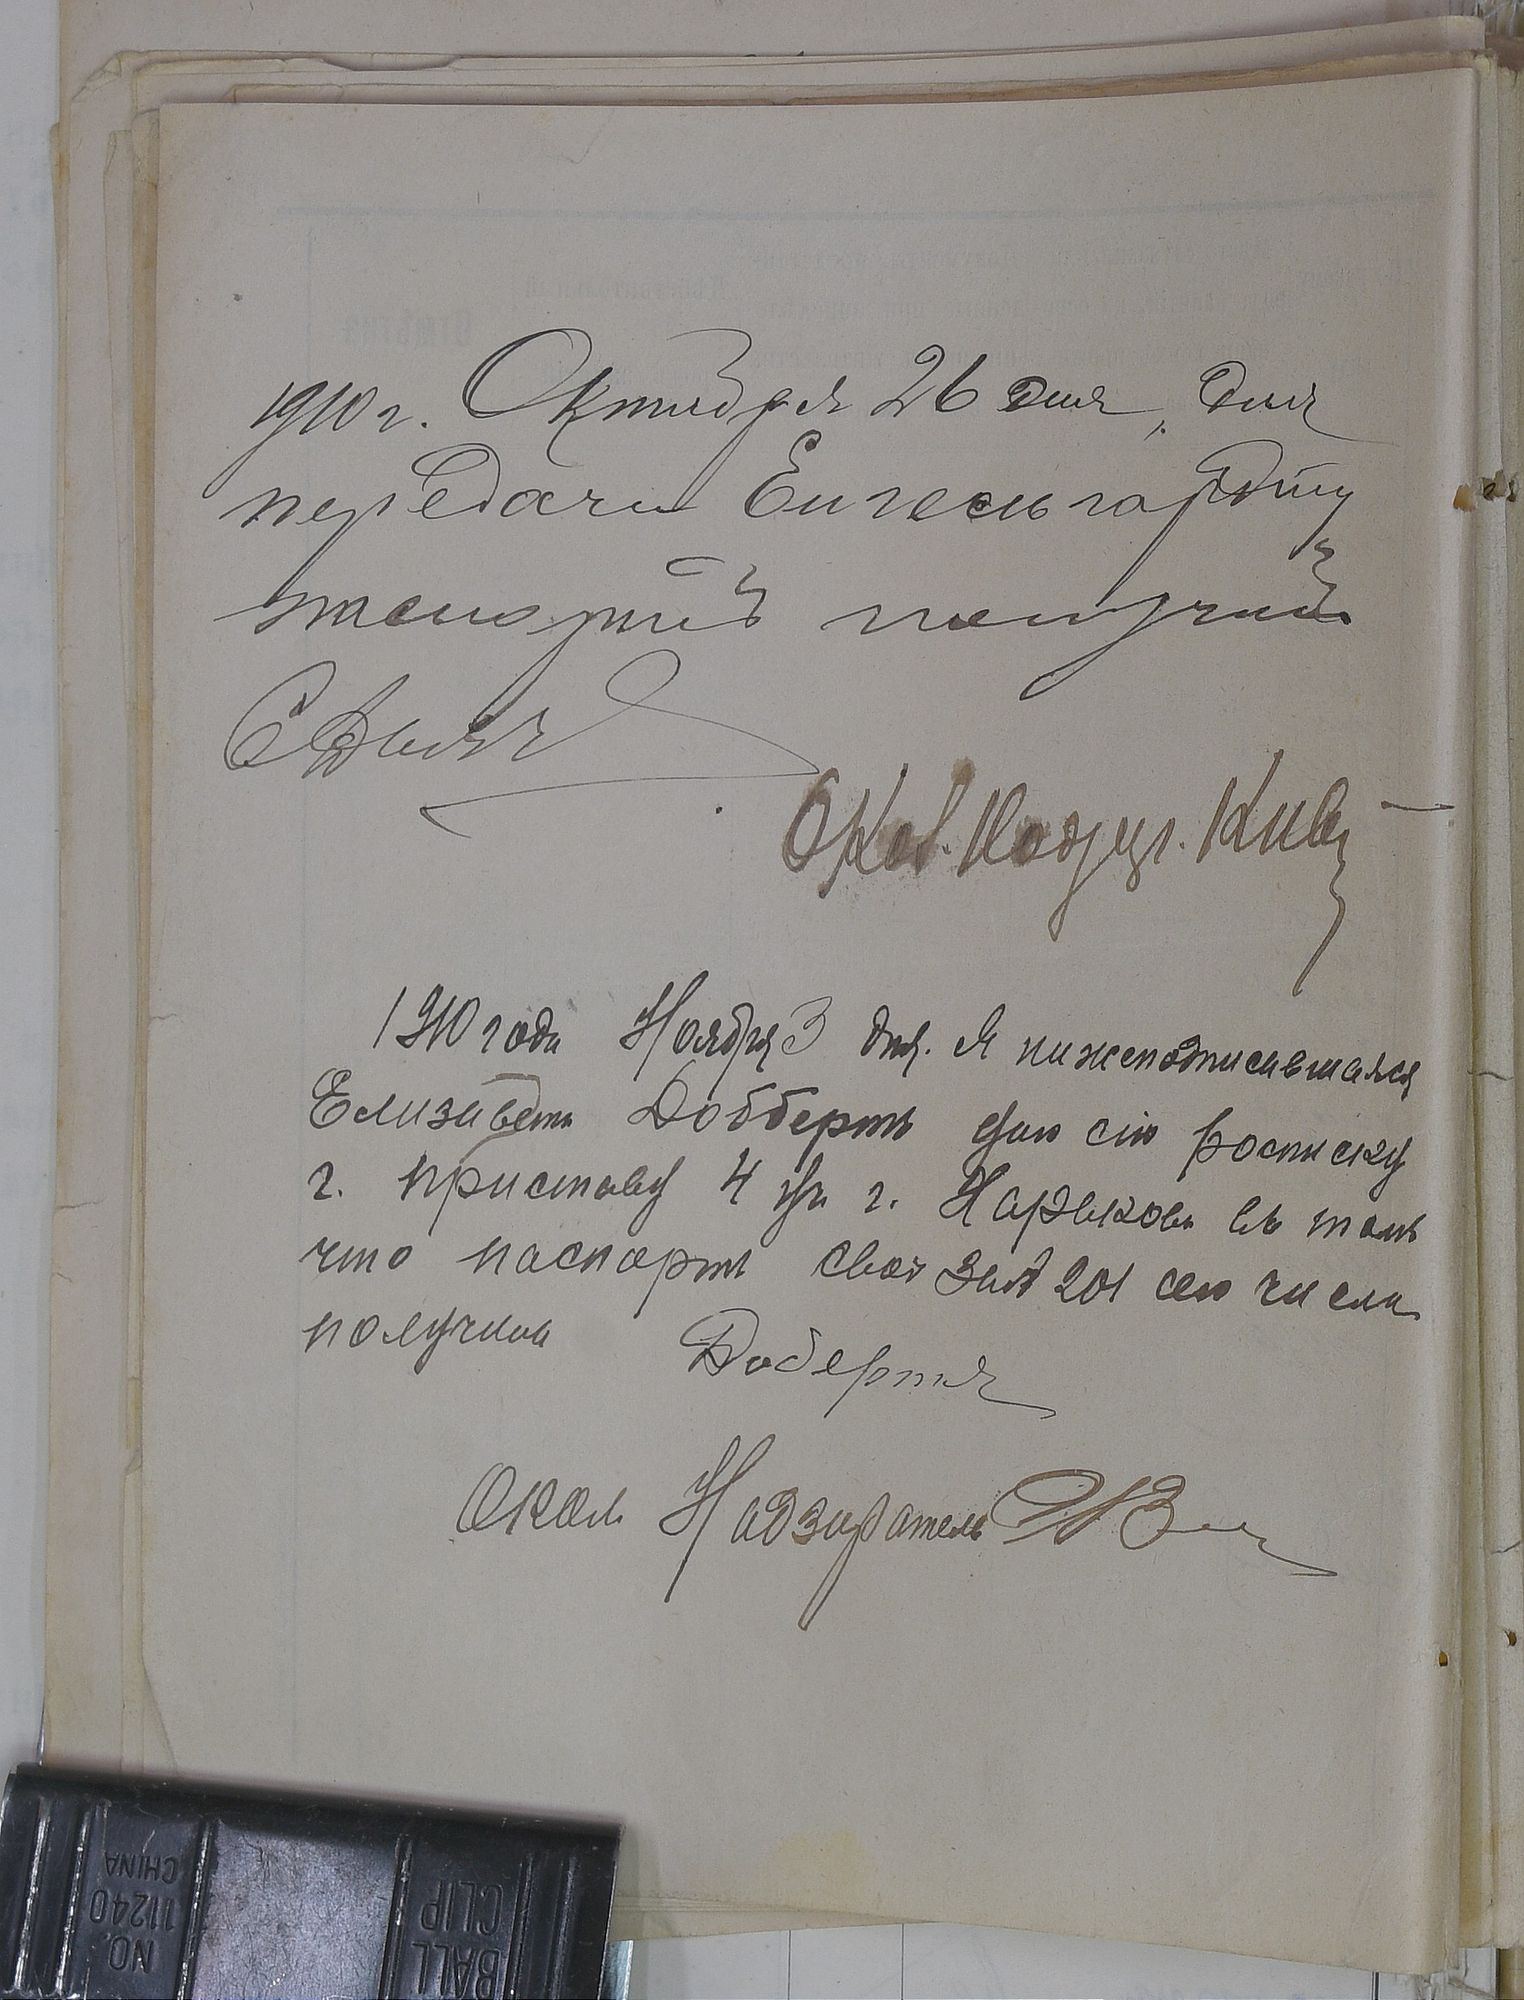 1910 г. Октября 26 дня, для
передачи Енгельгардту
паспортъ получилъ
Окол. Надзир.
1910 года Ноября 3 дня. Я нижеподписавшаяся
Елизавета Доббертъ даю сію росписку
г. приставу 4 уч. г. Харькова въ томъ
что паспортъ свой за № 201 сего числа
получила Добертъ
Окол. Надзиратель
BALL
CLIP
NO.
11240
CHINA